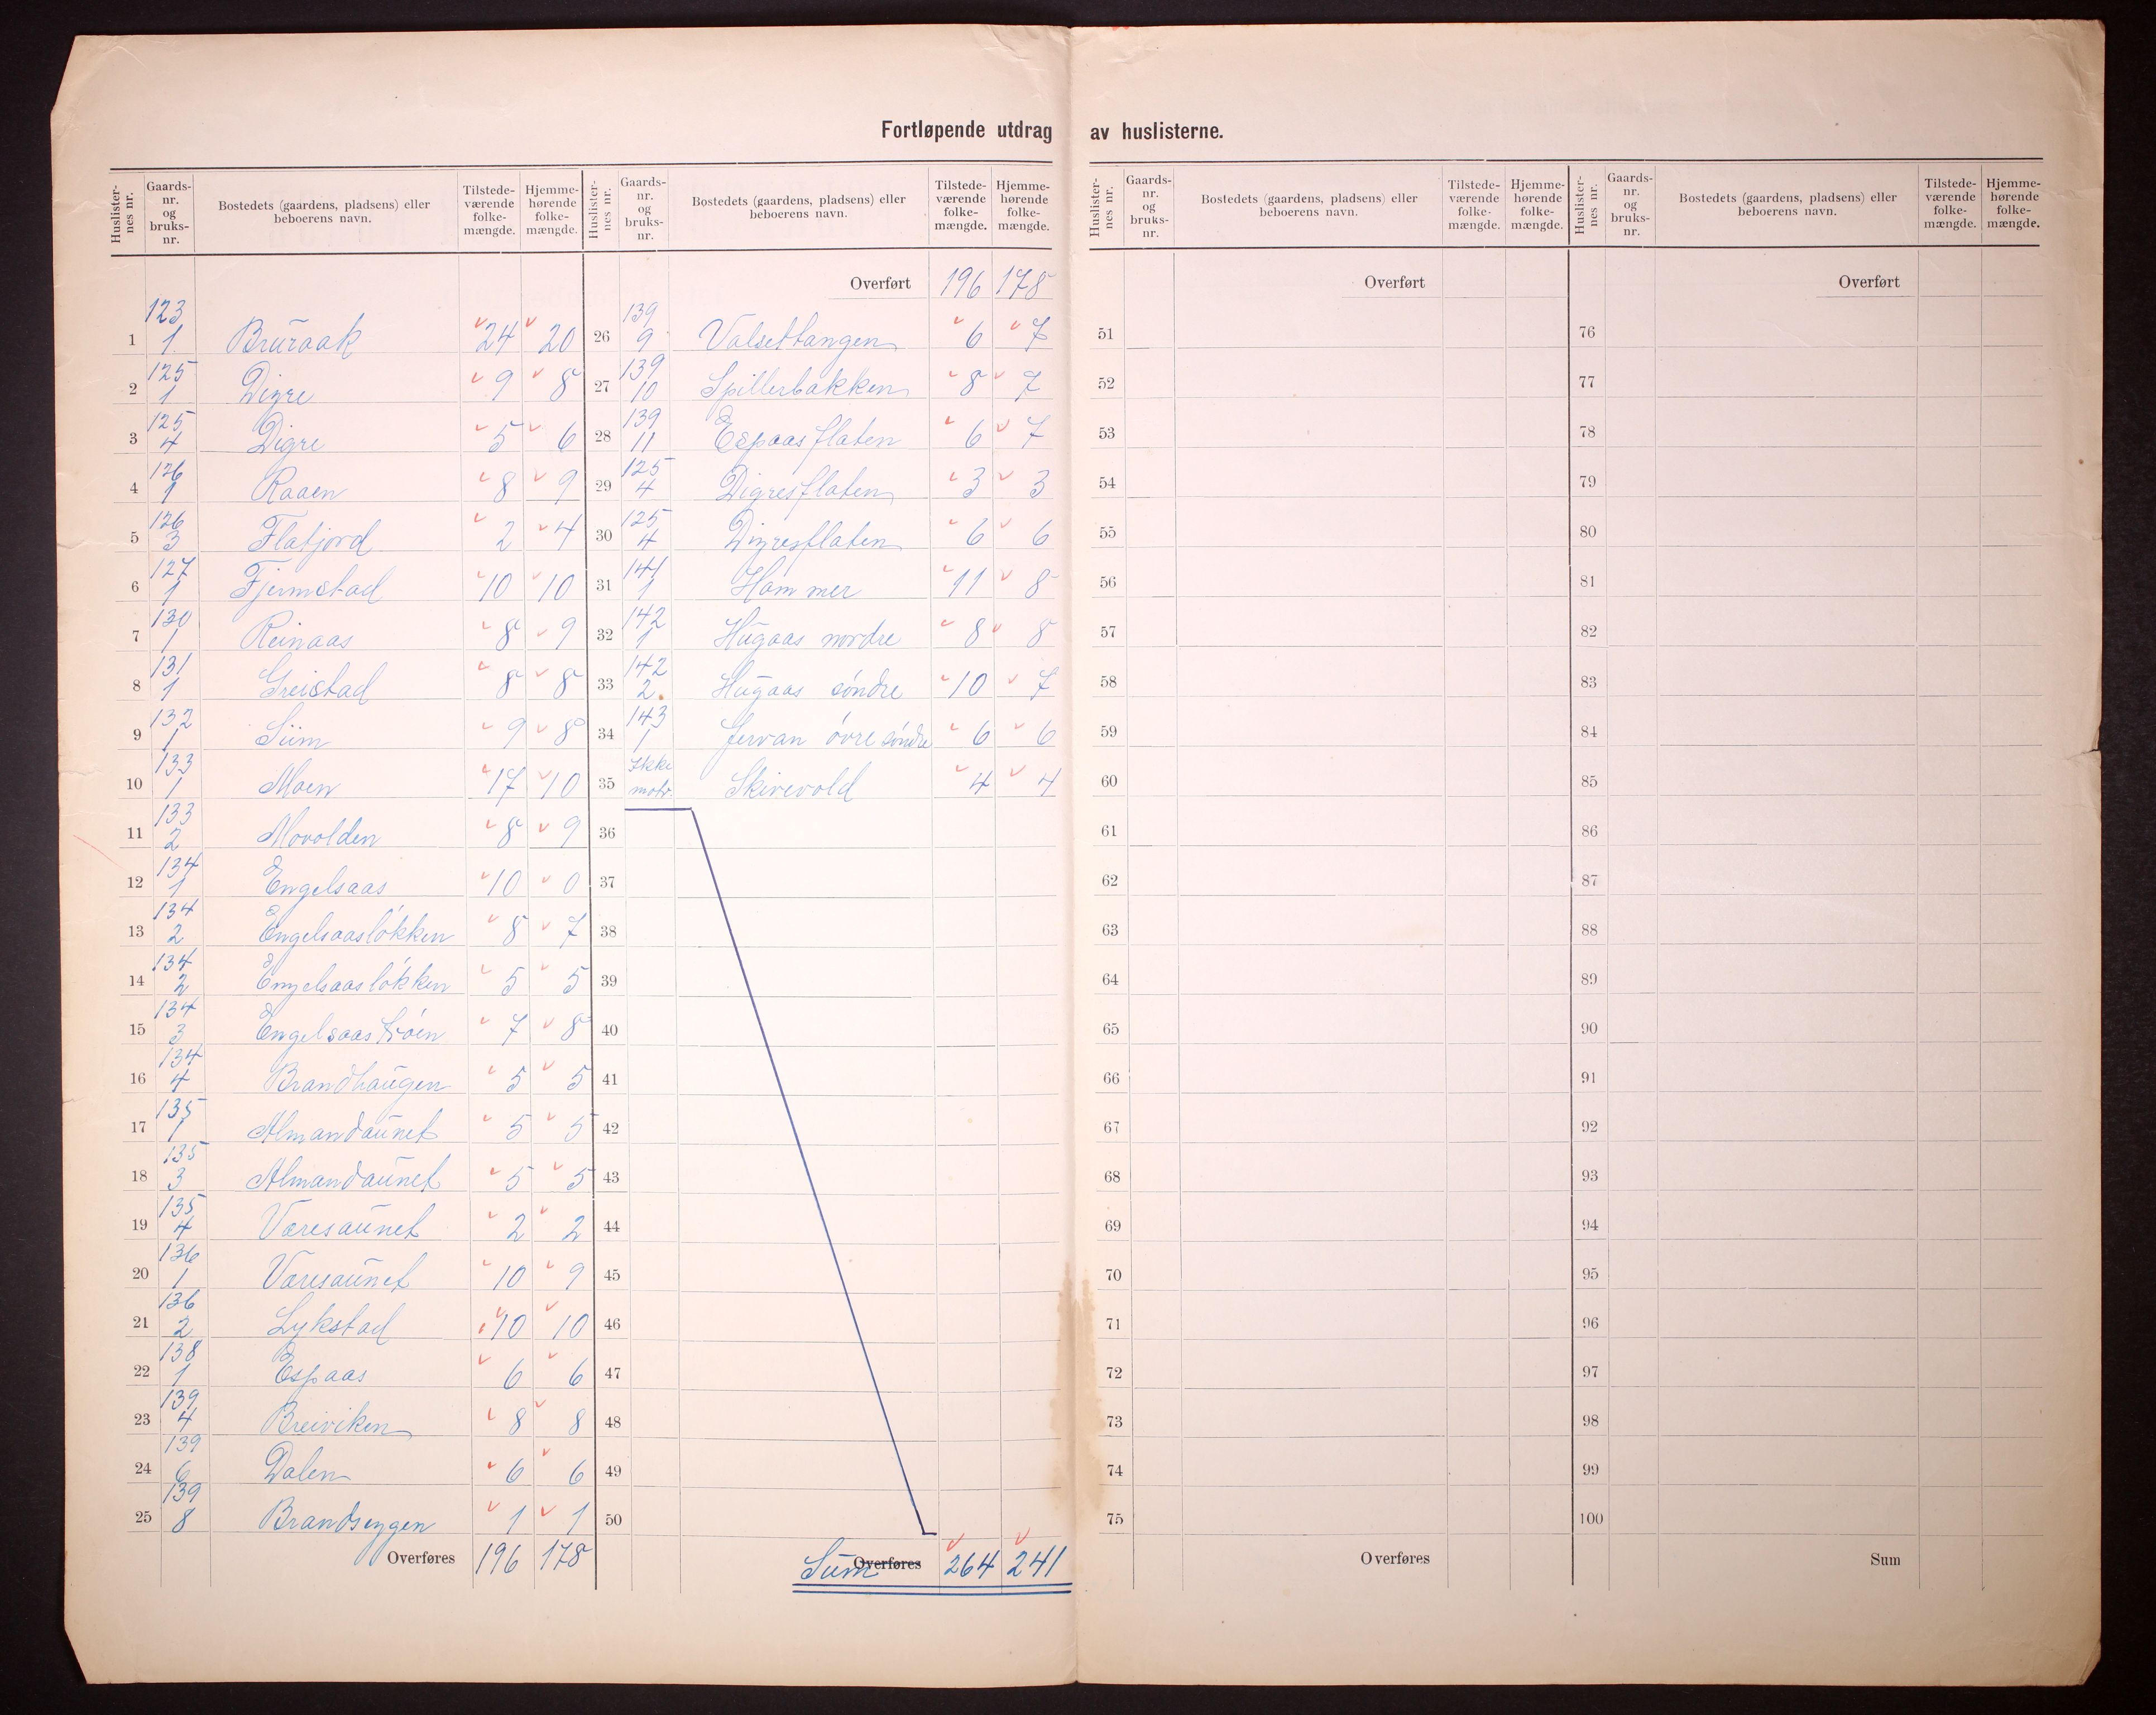 Fortløpende utdrag av huslisterne.
Huslisternes nr. | Gaardsnr. og bruksnr. | Bostedets (gaardens, pladsens) eller beboerens navn. | Tilstedeværende folkemængde. | Hjemmehørende folkemængde.
1 | 123 1 | Bruraak | 24 | 20
2 | 125 1 | Digre | 9 | 8
3 | 125 4 | Digre | 5 | 6
4 | 126 1 | Raaen | 8 | 9
5 | 126 3 | Flatjord | 2 | 4
6 | 127 1 | Fjermstad | 10 | 10
7 | 130 1 | Reinaas | 8 | 9
8 | 131 1 | Greistad | 8 | 8
9 | 132 1 | Sum | 9 | 8
10 | 133 1 | Moen | 17 | 10
11 | 133 2 | Movolden | 8 | 9
12 | 134 1 | Engelsaas | 10 | 0
13 | 134 2 | Engelsaasløkken | 8 | 7
14 | 134 2 | Engelsaasløkken | 5 | 5
15 | 134 3 | Engelsaas trøen | 7 | 8
16 | 134 4 | Brandhaugen | 5 | 5
17 | 135 1 | Almandaunet | 5 | 5
18 | 135 3 | Almandaunet | 5 | 5
19 | 135 4 | Væresaunet | 2 | 2
20 | 136 1 | Væresaunet | 10 | 9
21 | 136 2 | Lykstad | 10 | 10
22 | 138 1 | Espaas | 6 | 6
23 | 139 4 | Breiviken | 8 | 8
24 | 139 6 | Dalen | 6 | 6
25 | 139 8 | Brandseggen | 1 | 1
Overføres 196 178
Huslisternes nr. | Gaardsnr. og bruksnr. | Bostedets (gaardens, pladsens) eller beboerens navn. | Tilstedeværende folkemængde. | Hjemmehørende folkemængde.
Overført 196 178
26 | 139 9 | Valsettangen | 6 | 7
27 | 139 10 | Spillerbakken | 8 | 7
28 | 139 11 | Espaasflaten | 6 | 7
29 | 125 4 | Digresflaten | 3 | 3
30 | 125 4 | Digresflaten | 6 | 6
31 | 141 1 | Hammer | 11 | 8
32 | 142 1 | Hugaas nordre | 8 | 8
33 | 142 2 | Hugaas søndre | 10 | 7
34 | 143 1 | Jervan øvre søndre | 6 | 6
35 | Ikke matr. | Skirevold | 4 | 4
36
37
38
39
40
41
42
43
44
45
46
47
48
49
50
Overføres Sum 264 241
Huslisternes nr. | Gaardsnr. og bruksnr. | Bostedets (gaardens, pladsens) eller beboerens navn. | Tilstedeværende folkemængde. | Hjemmehørende folkemængde.
Overført
51
52
53
54
55
56
57
58
59
60
61
62
63
64
65
66
67
68
69
70
71
72
73
74
75
Overføres
Huslisternes nr. | Gaardsnr. og bruksnr. | Bostedets (gaardens, pladsens) eller beboerens navn. | Tilstedeværende folkemængde. | Hjemmehørende folkemængde.
Overført
76
77
78
79
80
81
82
83
84
85
86
87
88
89
90
91
92
93
94
95
96
97
98
99
100
Sum